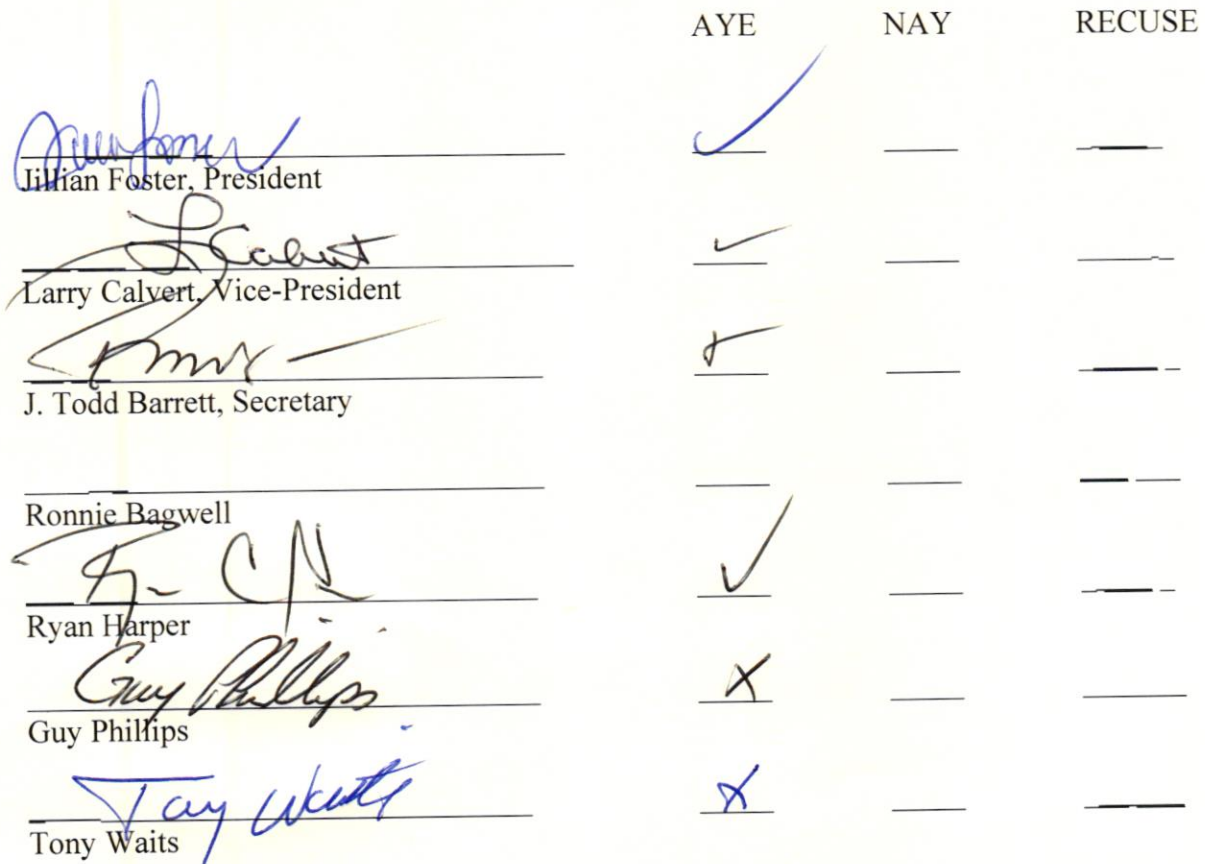 AYE NAY RECUSE
✓
Jillian Foster, President
L Calvert ✓
Larry Calvert, Vice-President
✓
J. Todd Barrett, Secretary
Ronnie Bagwell
✓
Ryan Harper
Guy Phillips X
Guy Phillips
Tony Waits X
Tony Waits